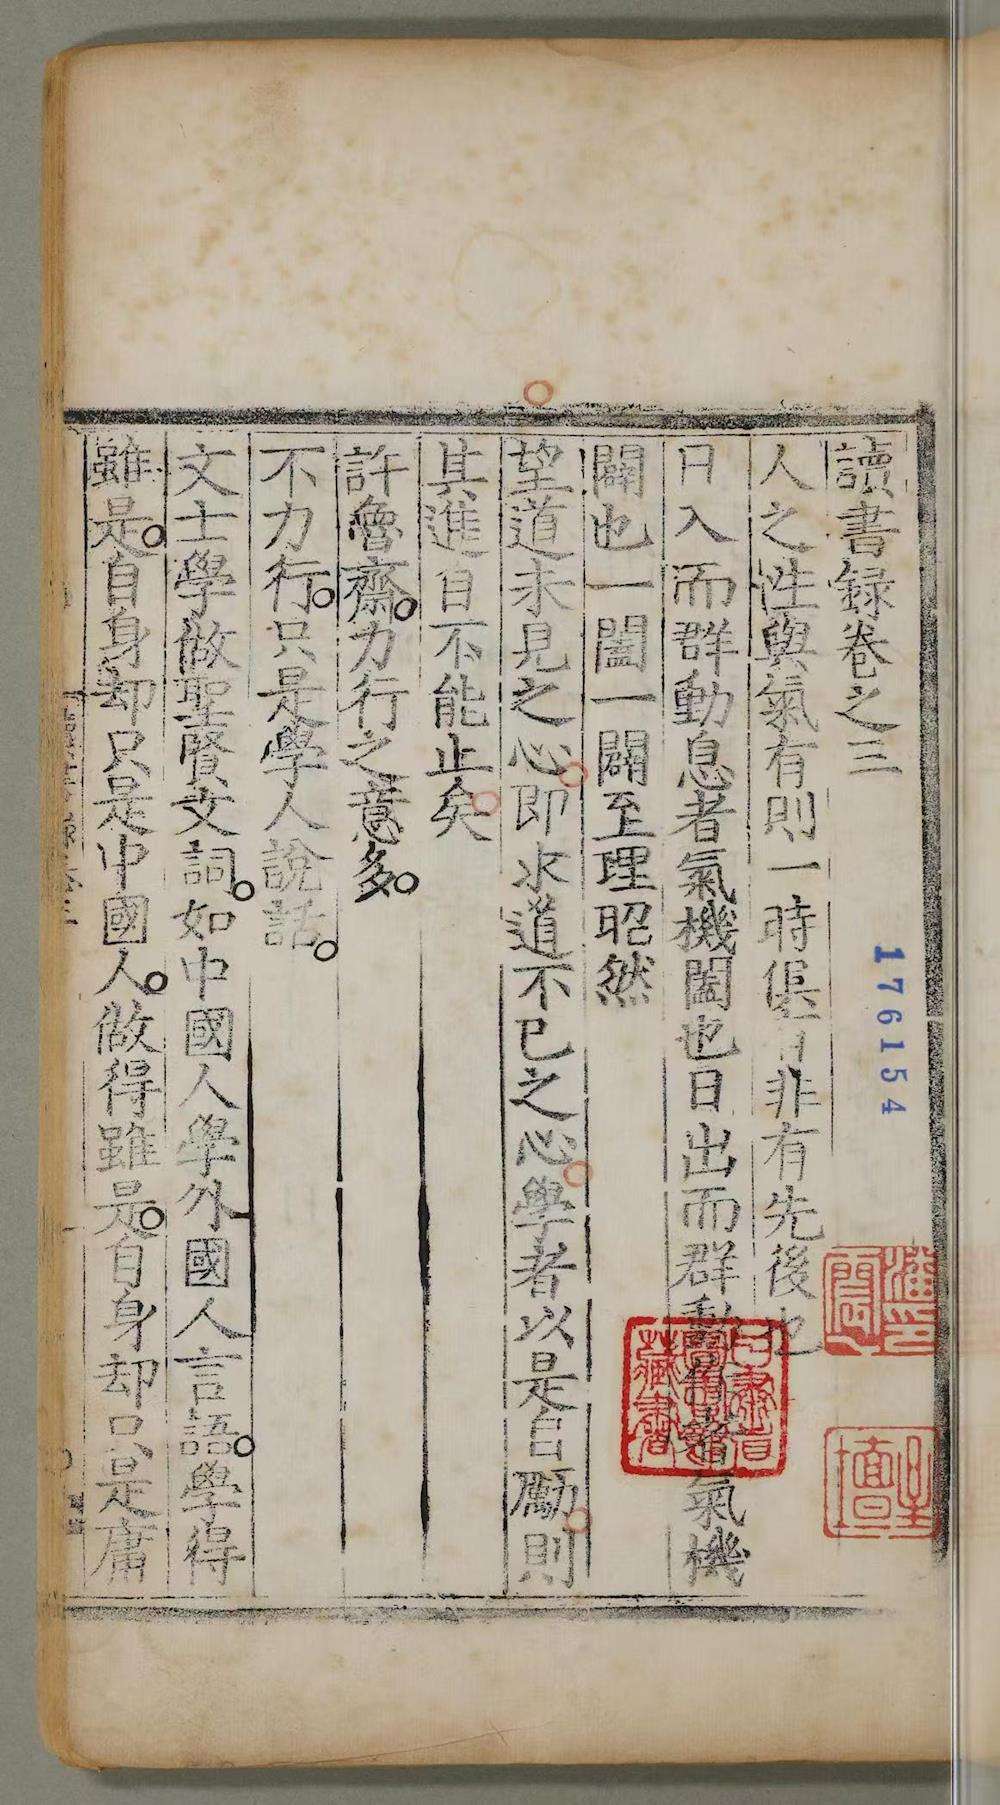 讀書録卷之三
人之性與氣有則一時俱有非有先後也
日入而群動息者氣機闔也日出而群動作者氣機
闢也一闔一闢至理昭然
望道未見之心即求道不已之心學者以是自勵則
其進自不能止矣
許魯齋力行之意多
不力行只是學人說話
文士學做聖賢文詞如中國人學外國人言語學得
雖是自身却只是中國人做得雖是自身却只是庸
176154